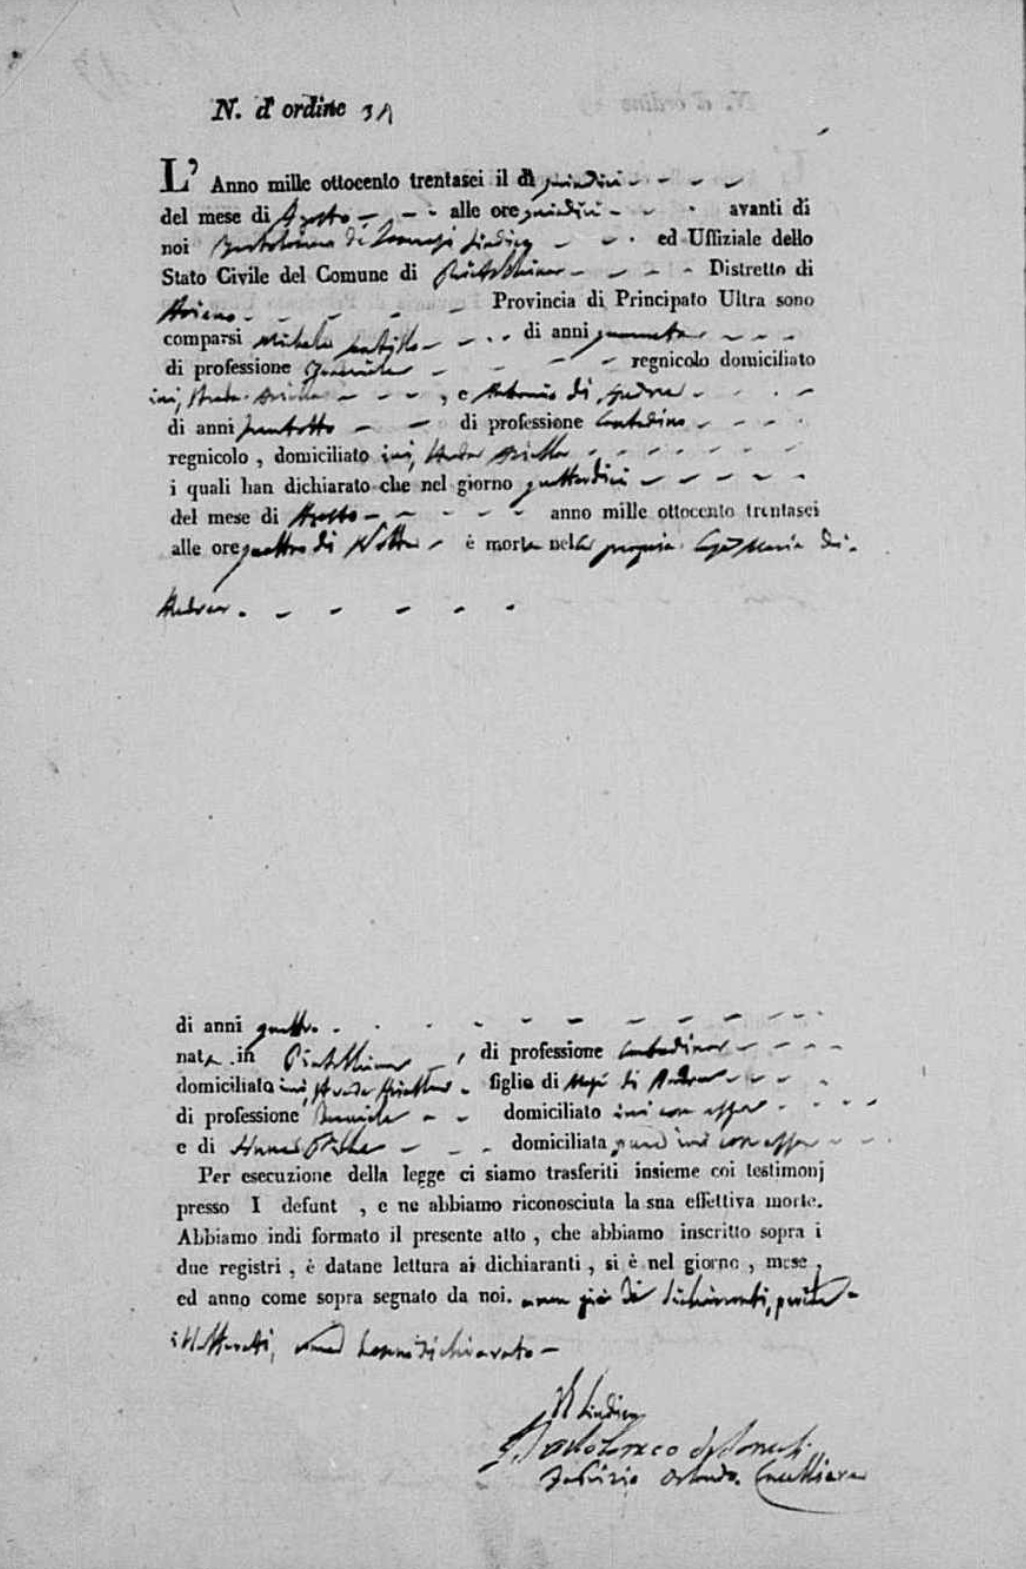 N. d' ordine
L' Anno mille ottocento trentasei il dì quindici
del mese di Agosto alle ore quindici avanti di
noi Bartolomeo di Sindico ed Uffiziale dello
Stato Civile del Comune di Distretto di
Ariano Provincia di Principato Ultra sono
comparsi Michele di anni quaranta
di professione regnicolo domiciliato
ivi, Strada e Antonio di Andrea
di anni trentotto di professione Contadino
regnicolo , domiciliato ivi, Strada
i quali han dichiarato che nel giorno quattordici
del mese di Agosto anno mille ottocento trentasei
alle ore quattro di Notte è morta nella propria Casa Maria di
Andrea
di anni quattro
nata in di professione Contadina
domiciliata ivi, Strada figlia di di Andrea
di professione domiciliato ivi con essa
e di domiciliata ivi con essa
Per esecuzione della legge ci siamo trasferiti insieme coi testimonj
presso I defunt , e ne abbiamo riconosciuta la sua effettiva morte.
Abbiamo indi formato il presente atto , che abbiamo inscritto sopra i
due registri , è datane lettura ai dichiaranti , si è nel giorno , mese ,
ed anno come sopra segnato da noi. e non già dai dichiaranti, perché
illetterati, come hanno dichiarato
Il Sindico
Bartolomeo
Fabrizio Orlando Cancelliere